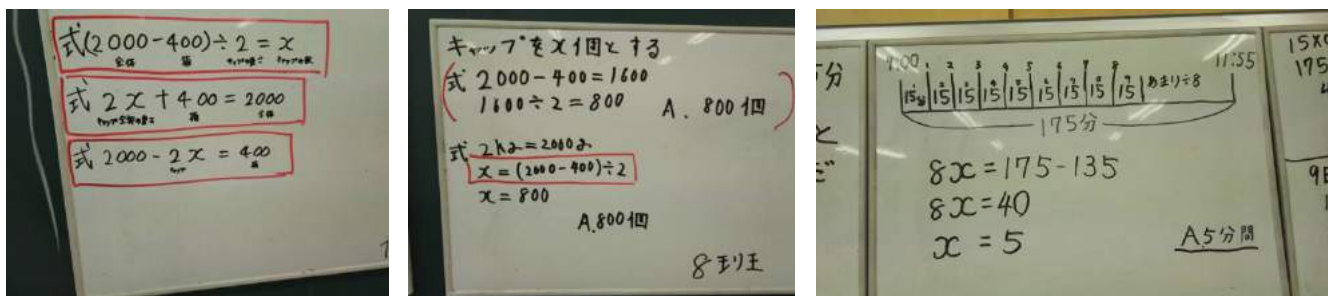 式(2000-400)÷2=x
全体 箱
式 2x+400=2000
箱 全体
式 2000-2x=400
箱
キャップをx個とする
式 2000-400=1600
1600÷2=800 A. 800個
式 2kg=2000g
x=(2000-400)÷2
x=800
A.800個
8班
分
と
9:00 1 2 3 4 5 6 7 8 11:55
15分 15 15 15 15 15 15 15 15 あまり÷8
175分
8x=175-135
8x=40
x=5
A5分間
175